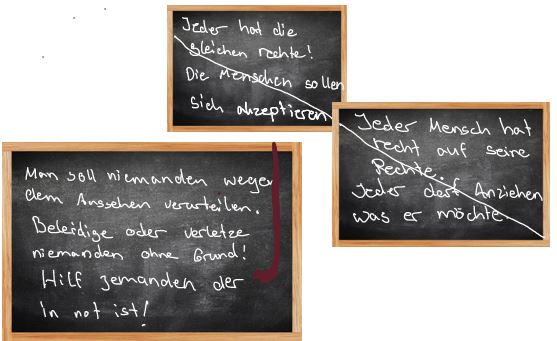 Jeder hat die
gleichen rechte!
Die Menschen sollen
sich akzeptieren
Jeder Mensch hat
recht auf seine
Rechte.
Jeder darf Anziehen
was er möchte.
Man soll niemanden wegen
dem Aussehen verurteilen.
Beleidige oder verletze
niemanden ohne Grund!
Hilf jemanden der
In not ist!